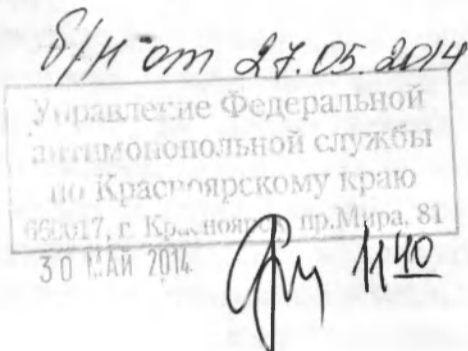 б/н от 27.05.2014
Управление Федеральной
антимонопольной службы
по Красноярскому краю
660017, г. Красноярск, пр.Мира, 81
30 МАЙ 2014
11 40